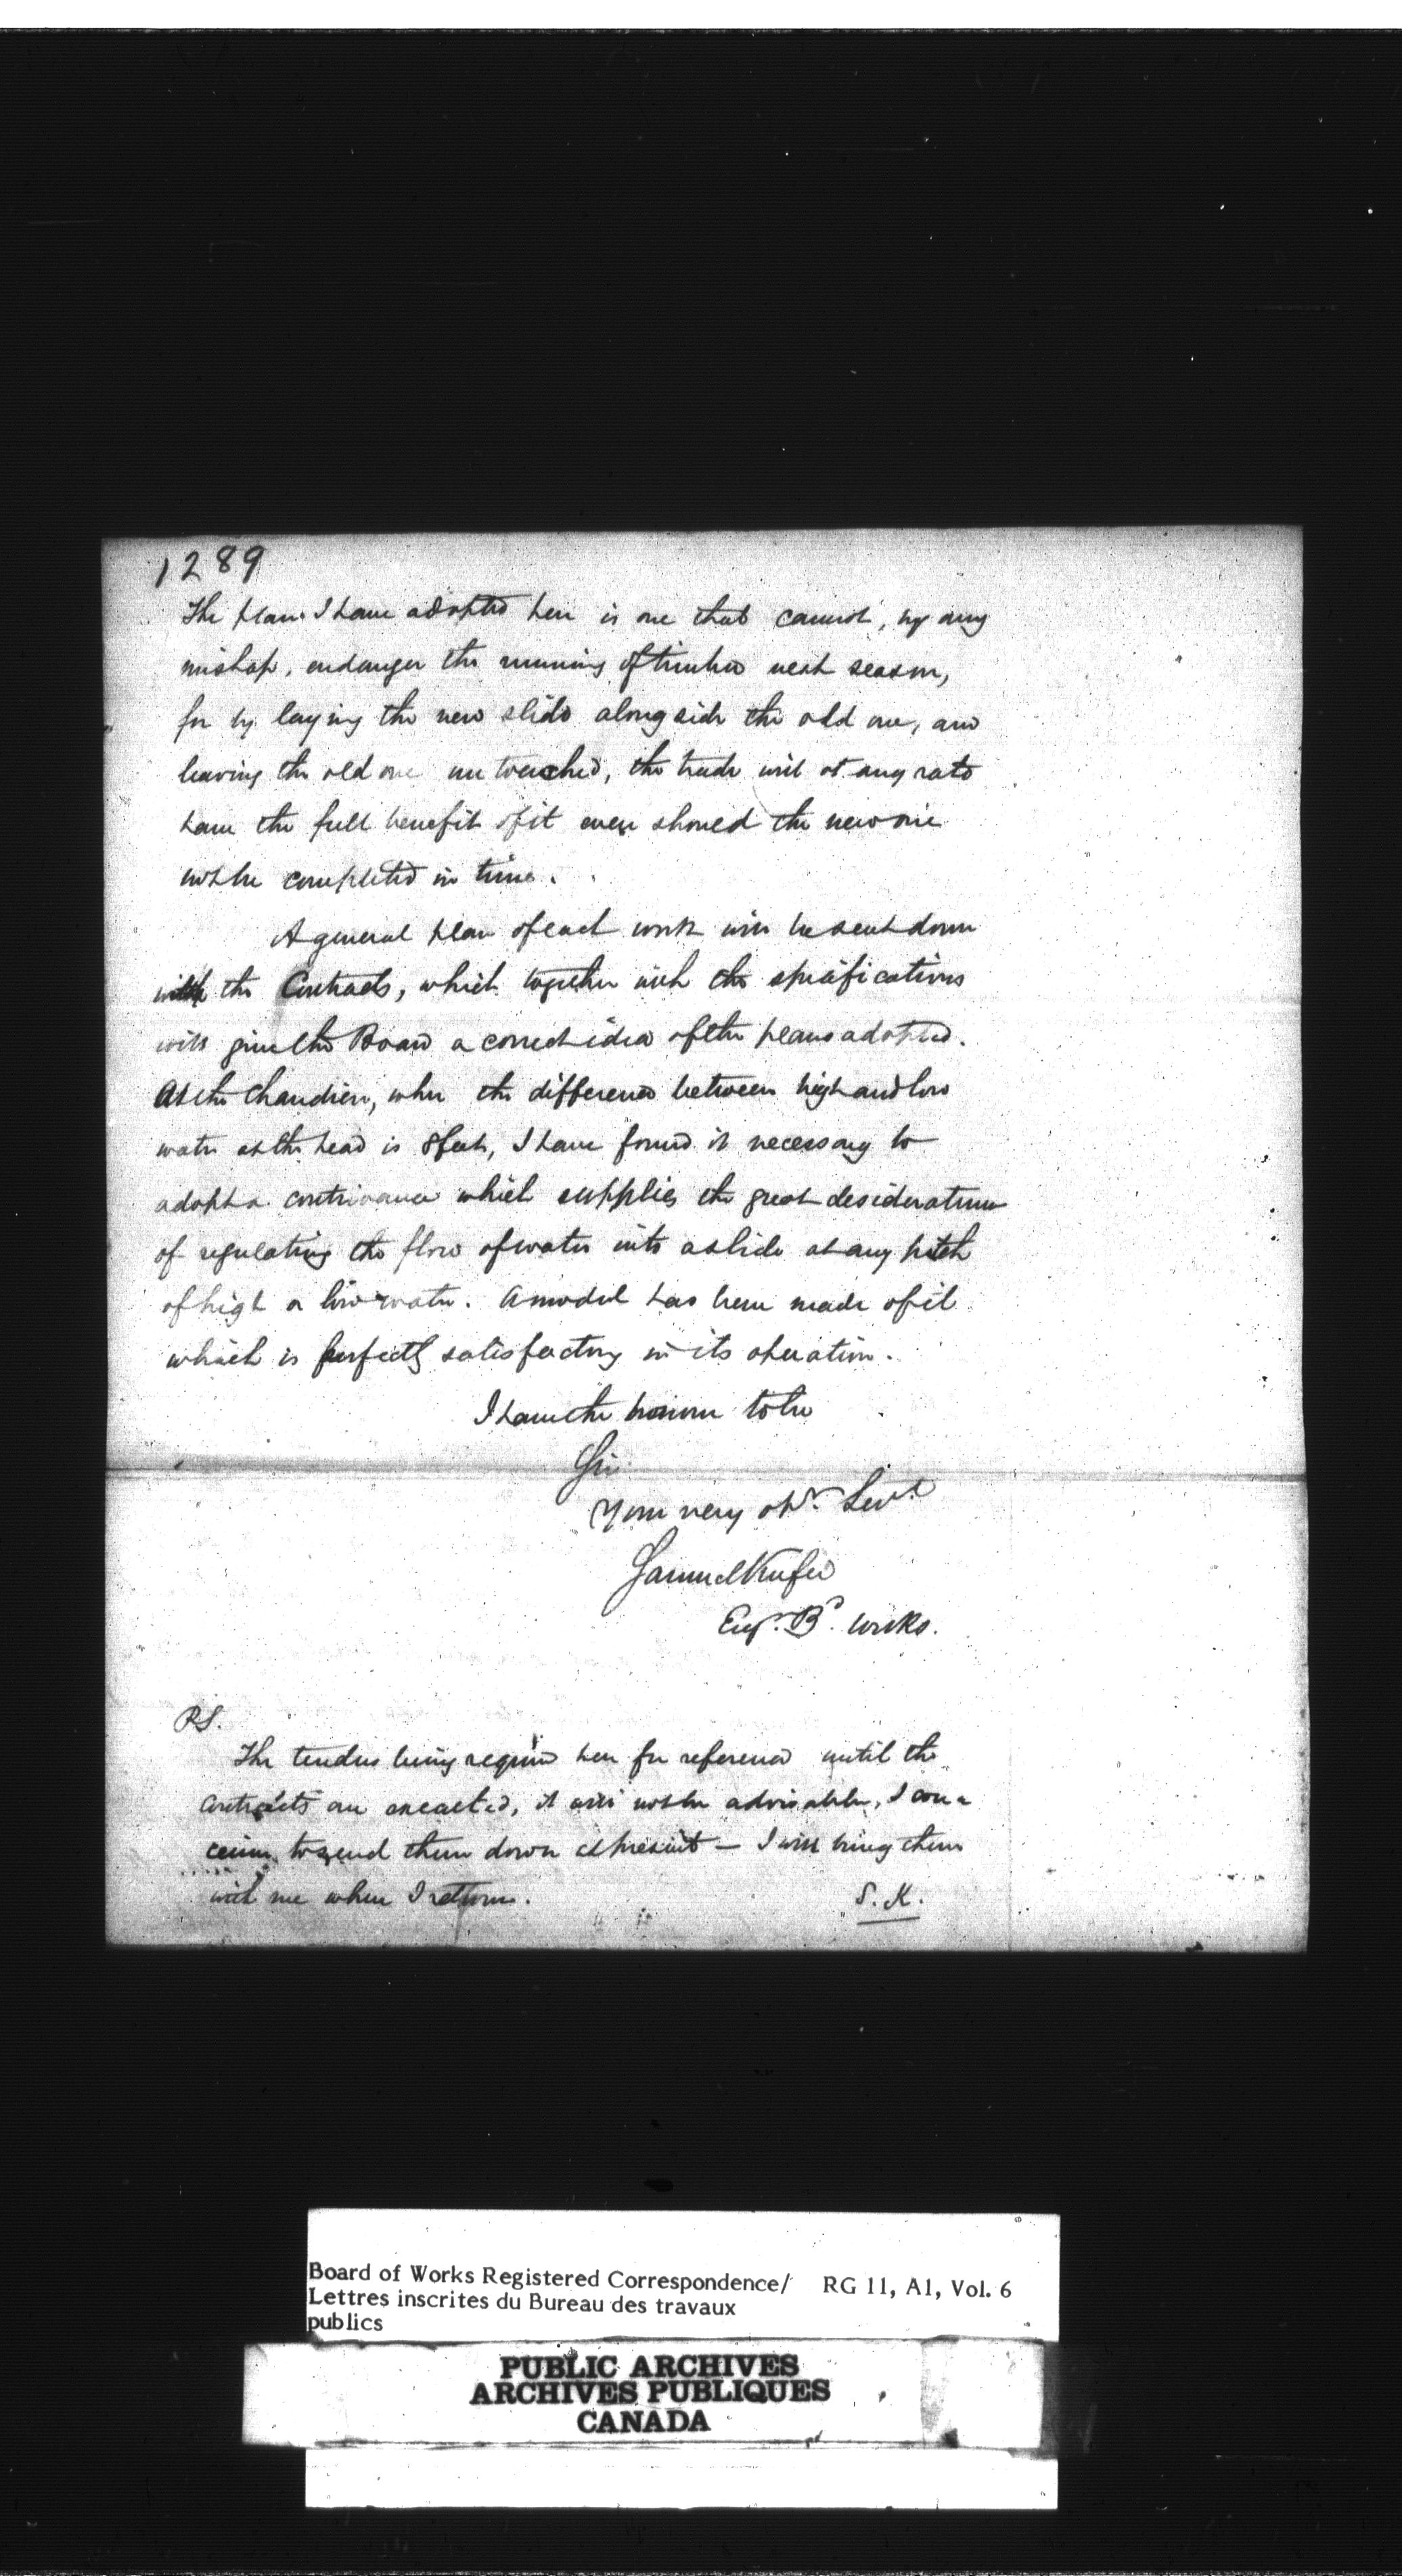 1289
The plan I have adopted here is one that cannot, by any
mishap, endanger the running of timber next season,
for by laying the new slide alongside the old one, and
leaving the old one untouched, the trade will at any rate
have the full benefit of it even should the new one
not be completed in time.
A general plan of each work will be sent down
with the Contracts, which together with the specifications
will give the Board a correct idea of the plans adopted.
At the Chaudiere, where the difference between high and low
water at the head is 8 feet, I have found it necessary to
adopt a contrivance which supplies the great desideratum
of regulating the flow of water into a slide at any pitch
of high or low water. A model has been made of it
which is perfectly satisfactory in its operation.
I have the honour to be
Sir
Your very obt. Servt.
Samuel Keefer
Engr. Bd. Works.
P.S.
The tenders being required here for reference until the
contracts are executed, it will not be advisable, I con-
ceive, to send them down at present — I will bring them
with me when I return.
S. K.
Board of Works Registered Correspondence/ RG 11, A1, Vol. 6
Lettres inscrites du Bureau des travaux
publics
PUBLIC ARCHIVES
ARCHIVES PUBLIQUES
CANADA